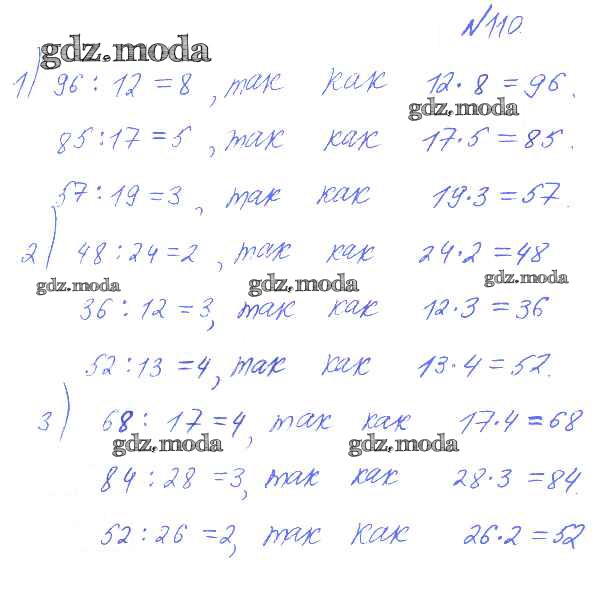 №110.
gdz.moda
1) 96 : 12 = 8, так как 12·8 = 96.
gdz.moda
85 : 17 = 5, так как 17·5 = 85.
57 : 19 = 3, так как 19·3 = 57.
2) 48 : 24 = 2, так как 24·2 = 48
gdz.moda gdz.moda gdz.moda
36 : 12 = 3, так как 12·3 = 36
52 : 13 = 4, так как 13·4 = 52.
3) 68 : 17 = 4, так как 17·4 = 68
gdz.moda gdz.moda
84 : 28 = 3, так как 28·3 = 84.
52 : 26 = 2, так как 26·2 = 52